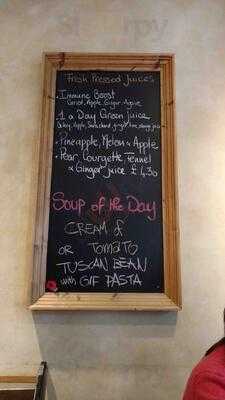 Fresh Pressed Juices
• Immune Boost
Carrot, Apple, Ginger, Agave
• 1 a Day Green Juice
Celery, Apple, ginger, lime,
• Pineapple, Melon & Apple
• Pear, Courgette, Fennel
& Ginger Juice £4.30
Soup of the Day
CREAM of
OR TOMATO
TUSCAN BEAN
with G/F PASTA